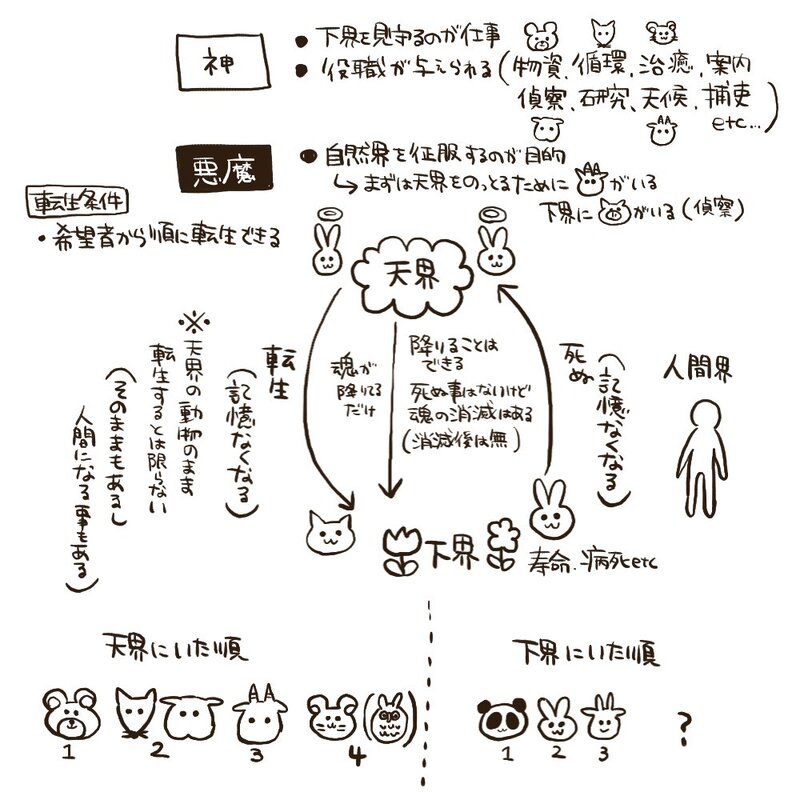 神
● 下界を見守るのが仕事
● 役職が与えられる(物資、循環、治癒、案内
偵察、研究、天候、捕吏
etc…)
悪魔
● 自然界を征服するのが目的
↳ まずは天界をのっとるために がいる
下界に がいる(偵察)
転生条件
・希望者から順に転生できる
天界
転生
(記憶なくなる)
※天界の動物のまま
転生するとは限らない
(そのままもあるし
人間になる事もある)
魂が
降りてる
だけ
降りることは
できる
死ぬ事はないけど
魂の消滅はある
(消滅後は無)
死ぬ
(記憶なくなる)
人間界
下界
寿命、病死etc
天界にいた順
1 2 3 4
下界にいた順
1 2 3 ?